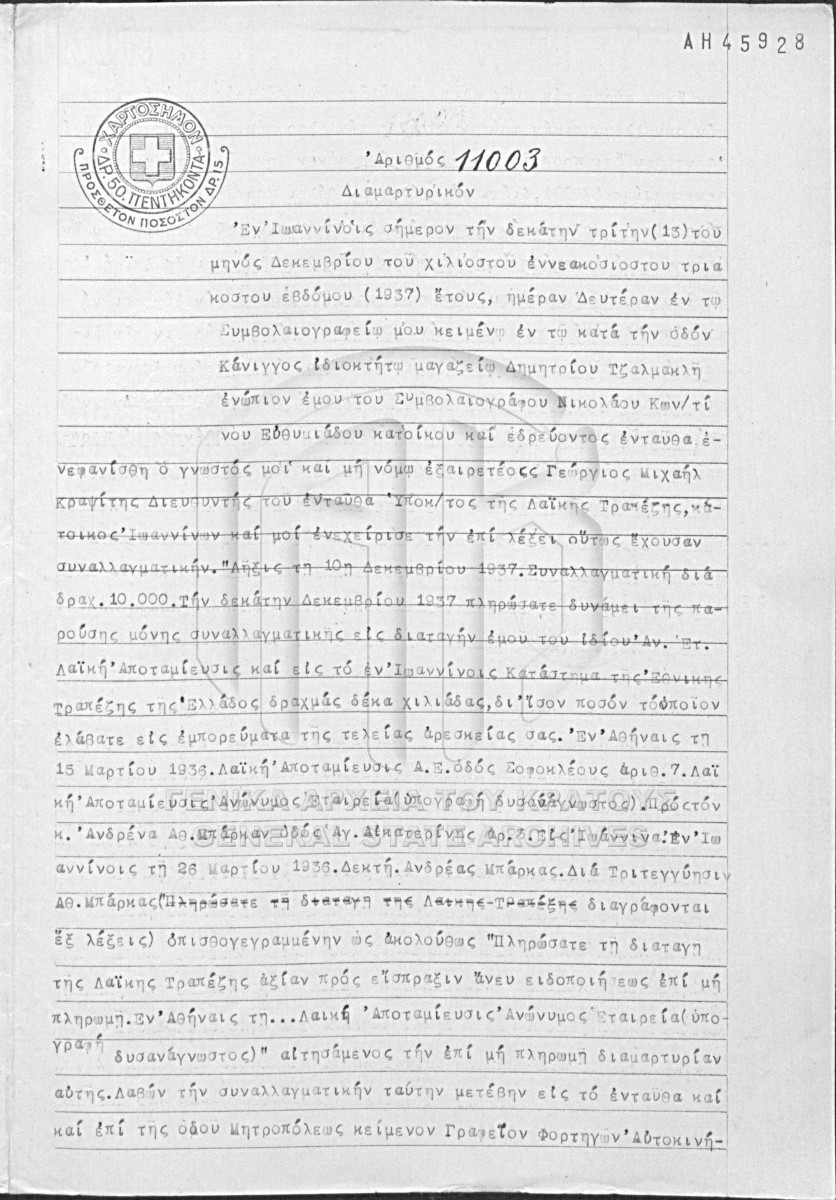 ΑΗ45928
ΧΑΡΤΟΣΗΜΟΝ
ΔΡ. 50. ΠΕΝΤΗΚΟΝΤΑ
ΠΡΟΣΘΕΤΟΝ ΠΟΣΟΣΤΟΝ ΔΡ. 15
Ἀριθμός 11003
Διαμαρτυρικόν
Ἐν Ἰωαννίνοις σήμερον τήν δεκάτην τρίτην(13)του
μηνός Δεκεμβρίου του χιλιοστου ἐννεακοσιοστου τρια
κοστου ἑβδόμου (1937) ἔτους, ημέραν Δευτέραν ἐν τω
Συμβολαιογραφείω μου κειμένω ἐν τω κατά τήν ὁδόν
Κάνιγγος ἰδιοκτήτω μαγαζείω Δημητρίου Τζαλμακλη
ἐνώπιον ἐμου του Συμβολαιογράφου Νικολάου Κων/τί
νου Εὐθυμιάδου κατοίκου καί ἑδρεύοντος ἐνταυθα ἐ-
νεφανίσθη ὁ γνωστός μοι και μή νόμω ἐξαιρετέοςς Γεώργιος Μιχαήλ
Κραψίτης Διευθυντής του ἐνταυθα Ὑποκ/τος της Λαϊκης Τραπέζης,κά-
τοικος Ἰωαννίνων καί μοί ἐνεχείρισε τήν ἐπί λέξει οὕτως ἔχουσαν
συναλλαγματικήν."Λῆξις τη 10η Δεκεμβρίου 1937.Συναλλαγματική διά
δραχ.10.000.Τήν δεκάτην Δεκεμβρίου 1937 πληρώσατε δυνάμει της πα-
ρούσης μόνης συναλλαγματικης εἰς διαταγήν ἐμου του ἰδίου Ἀν. Ἑτ.
Λαϊκή Ἀποταμίευσις καί εἰς τό ἐν Ἰωαννίνοις Κατάστημα της Ἐθνικης
Τραπέζης της Ἑλλάδος δραχμάς δέκα χιλιάδας,δι' ἴσον ποσόν τόὁποῖον
ἐλάβατε εἰς ἐμπορεύματα της τελείας ἀρεσκείας σας. Ἐν Ἀθήναις τη
15 Μαρτίου 1936.Λαϊκή Ἀποταμίευσις Α.Ε.ὁδός Σοφοκλέους ἀριθ.7.Λαϊ
κή Ἀποταμίευσις Ἀνώνυμος Ἑταιρεία(ὑπογραφή δυσανάγνωστος).Πρόςτόν
κ. Ἀνδρένα Αθ.Μπάρκαν ὁδός Αγ. Αἰκατερίνης ἀρ.3.Εἰς Ἰωάννινα.Ἐν Ἰω
αννίνοις τη 26 Μαρτίου 1936.Δεκτή.Ανδρέας Μπάρκας.Διά Τριτεγγύησιν
Αθ.Μπάρκας(Πληρώσατε τη διαταγη της Λαικης Τραπέζης διαγράφονται
ἕξ λέξεις) ὀπισθογεγραμμένην ὡς ἀκολούθως "Πληρώσατε τη διαταγη
της Λαϊκης Τραπέζης ἀξίαν πρός εἴσπραξιν ἄνευ ειδοποιήσεως ἐπί μή
πληρωμη.Εν Ἀθήναις τη... Λαική Ἀποταμίευσις Ἀνώνυμος Ἑταιρεία(ὑπο-
γραφή
δυσανάγνωστος)" αἰτησάμενος τήν ἐπί μή πληρωμη διαμαρτυρίαν
αὐτης.Λαβών τήν συναλλαγματικήν ταύτην μετέβην εἰς τό ἐνταυθα καί
καί ἐπί της ὁδου Μητροπόλεως κείμενον Γραφεῖον Φορτηγων Αὐτοκινή-
ΓΕΝΙΚΑ ΑΡΧΕΙΑ ΤΟΥ ΚΡΑΤΟΥΣ
GENERAL STATE ARCHIVES